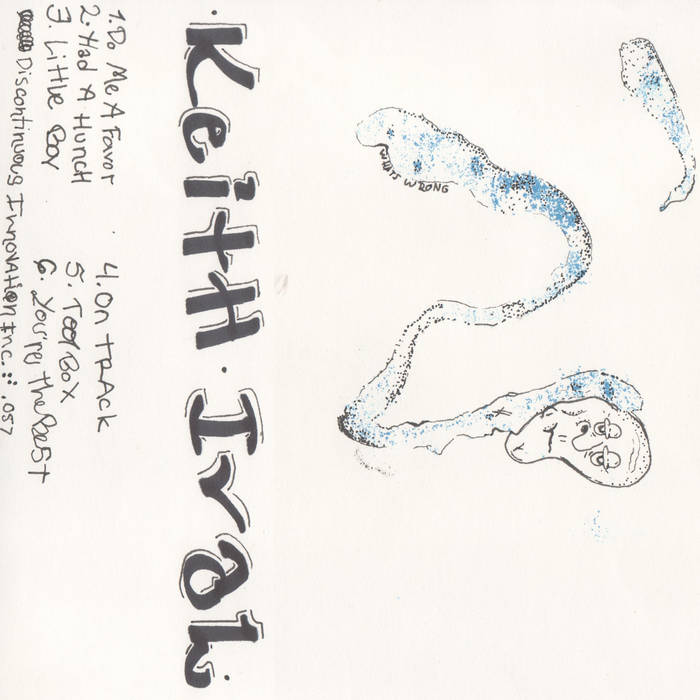 WHAT'S WRONG
·KeitH·Iral.
1. Do Me A Favor
2. Had A HuncH
3. LittLe Boy
4. On TRACK
5. TooL BoX
6. You're the Best
Discontinuous InnovAtion Inc. .057